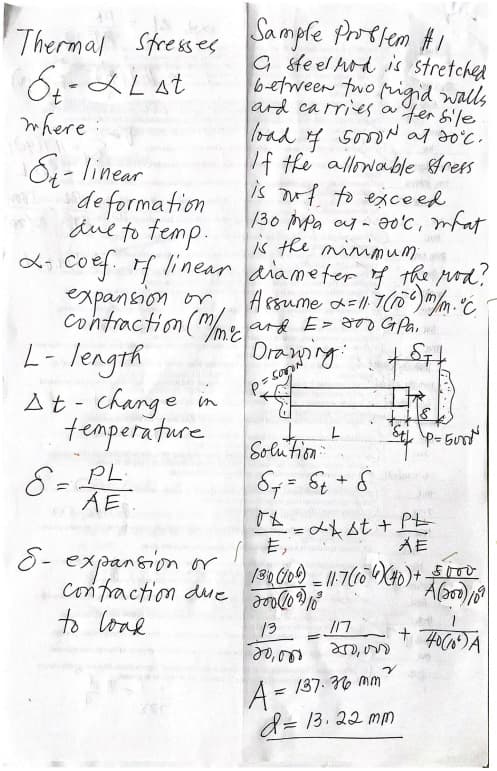 Thermal Stresses
δt = αLΔt
where:
δt - linear
deformation
due to temp.
α - coef. of linear
expansion or
contraction (m/m·°C)
L - length
Δt - change in
temperature
δ = PL/AE
δ - expansion or
contraction due
to load
Sample Problem #1
A steel rod is stretched
between two rigid walls
and carries a tensile
load of 5000N at 20°C.
If the allowable stress
is not to exceed
130 MPa at -20°C, what
is the minimum
diameter of the rod?
Assume α=11.7(10⁻⁶) m/m·°C
and E=200 GPa.
Drawing:
δT
P=5000N
L
δt
δ
P=5000N
Solution:
δT = δt + δ
σL/E = αLΔt + PL/AE
130(10⁶)/200(10⁹)10³ = 11.7(10⁻⁶)(40) + 5000/A(200)10⁹
13/20,000 = 117/250,000 + 1/40(10⁶)A
A = 137.36 mm²
d = 13.22 mm